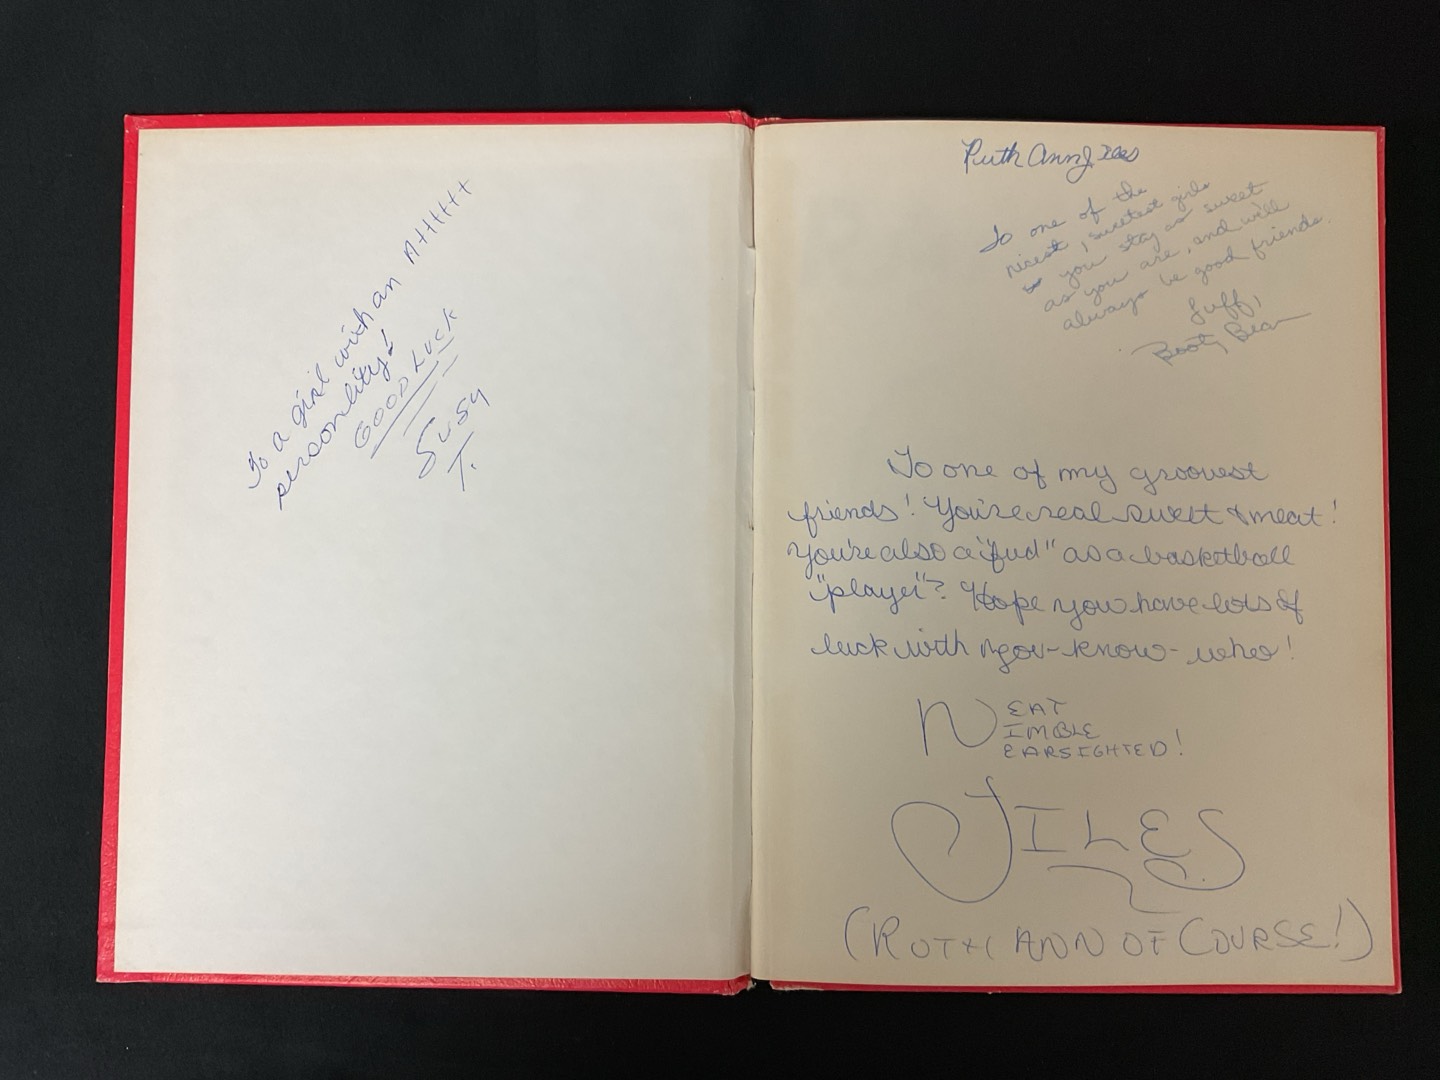 To a girl with an A++++++
personality!
GOOD LUCK
Susy
T.
Ruth Ann Jiles
To one of the
nicest, sweetest girls
you stay as sweet
as you are, and will
always be good friends.
Luff,
Booty Bear
To one of my groovest
friends! You're real sweet & meat!
You're also a "fud" as a basketball
"player"? Hope you have lots of
luck with you-know-who!
NEAT
IMBLE
EARSIGHTED!
JILES
(RUTH ANN OF COURSE!)